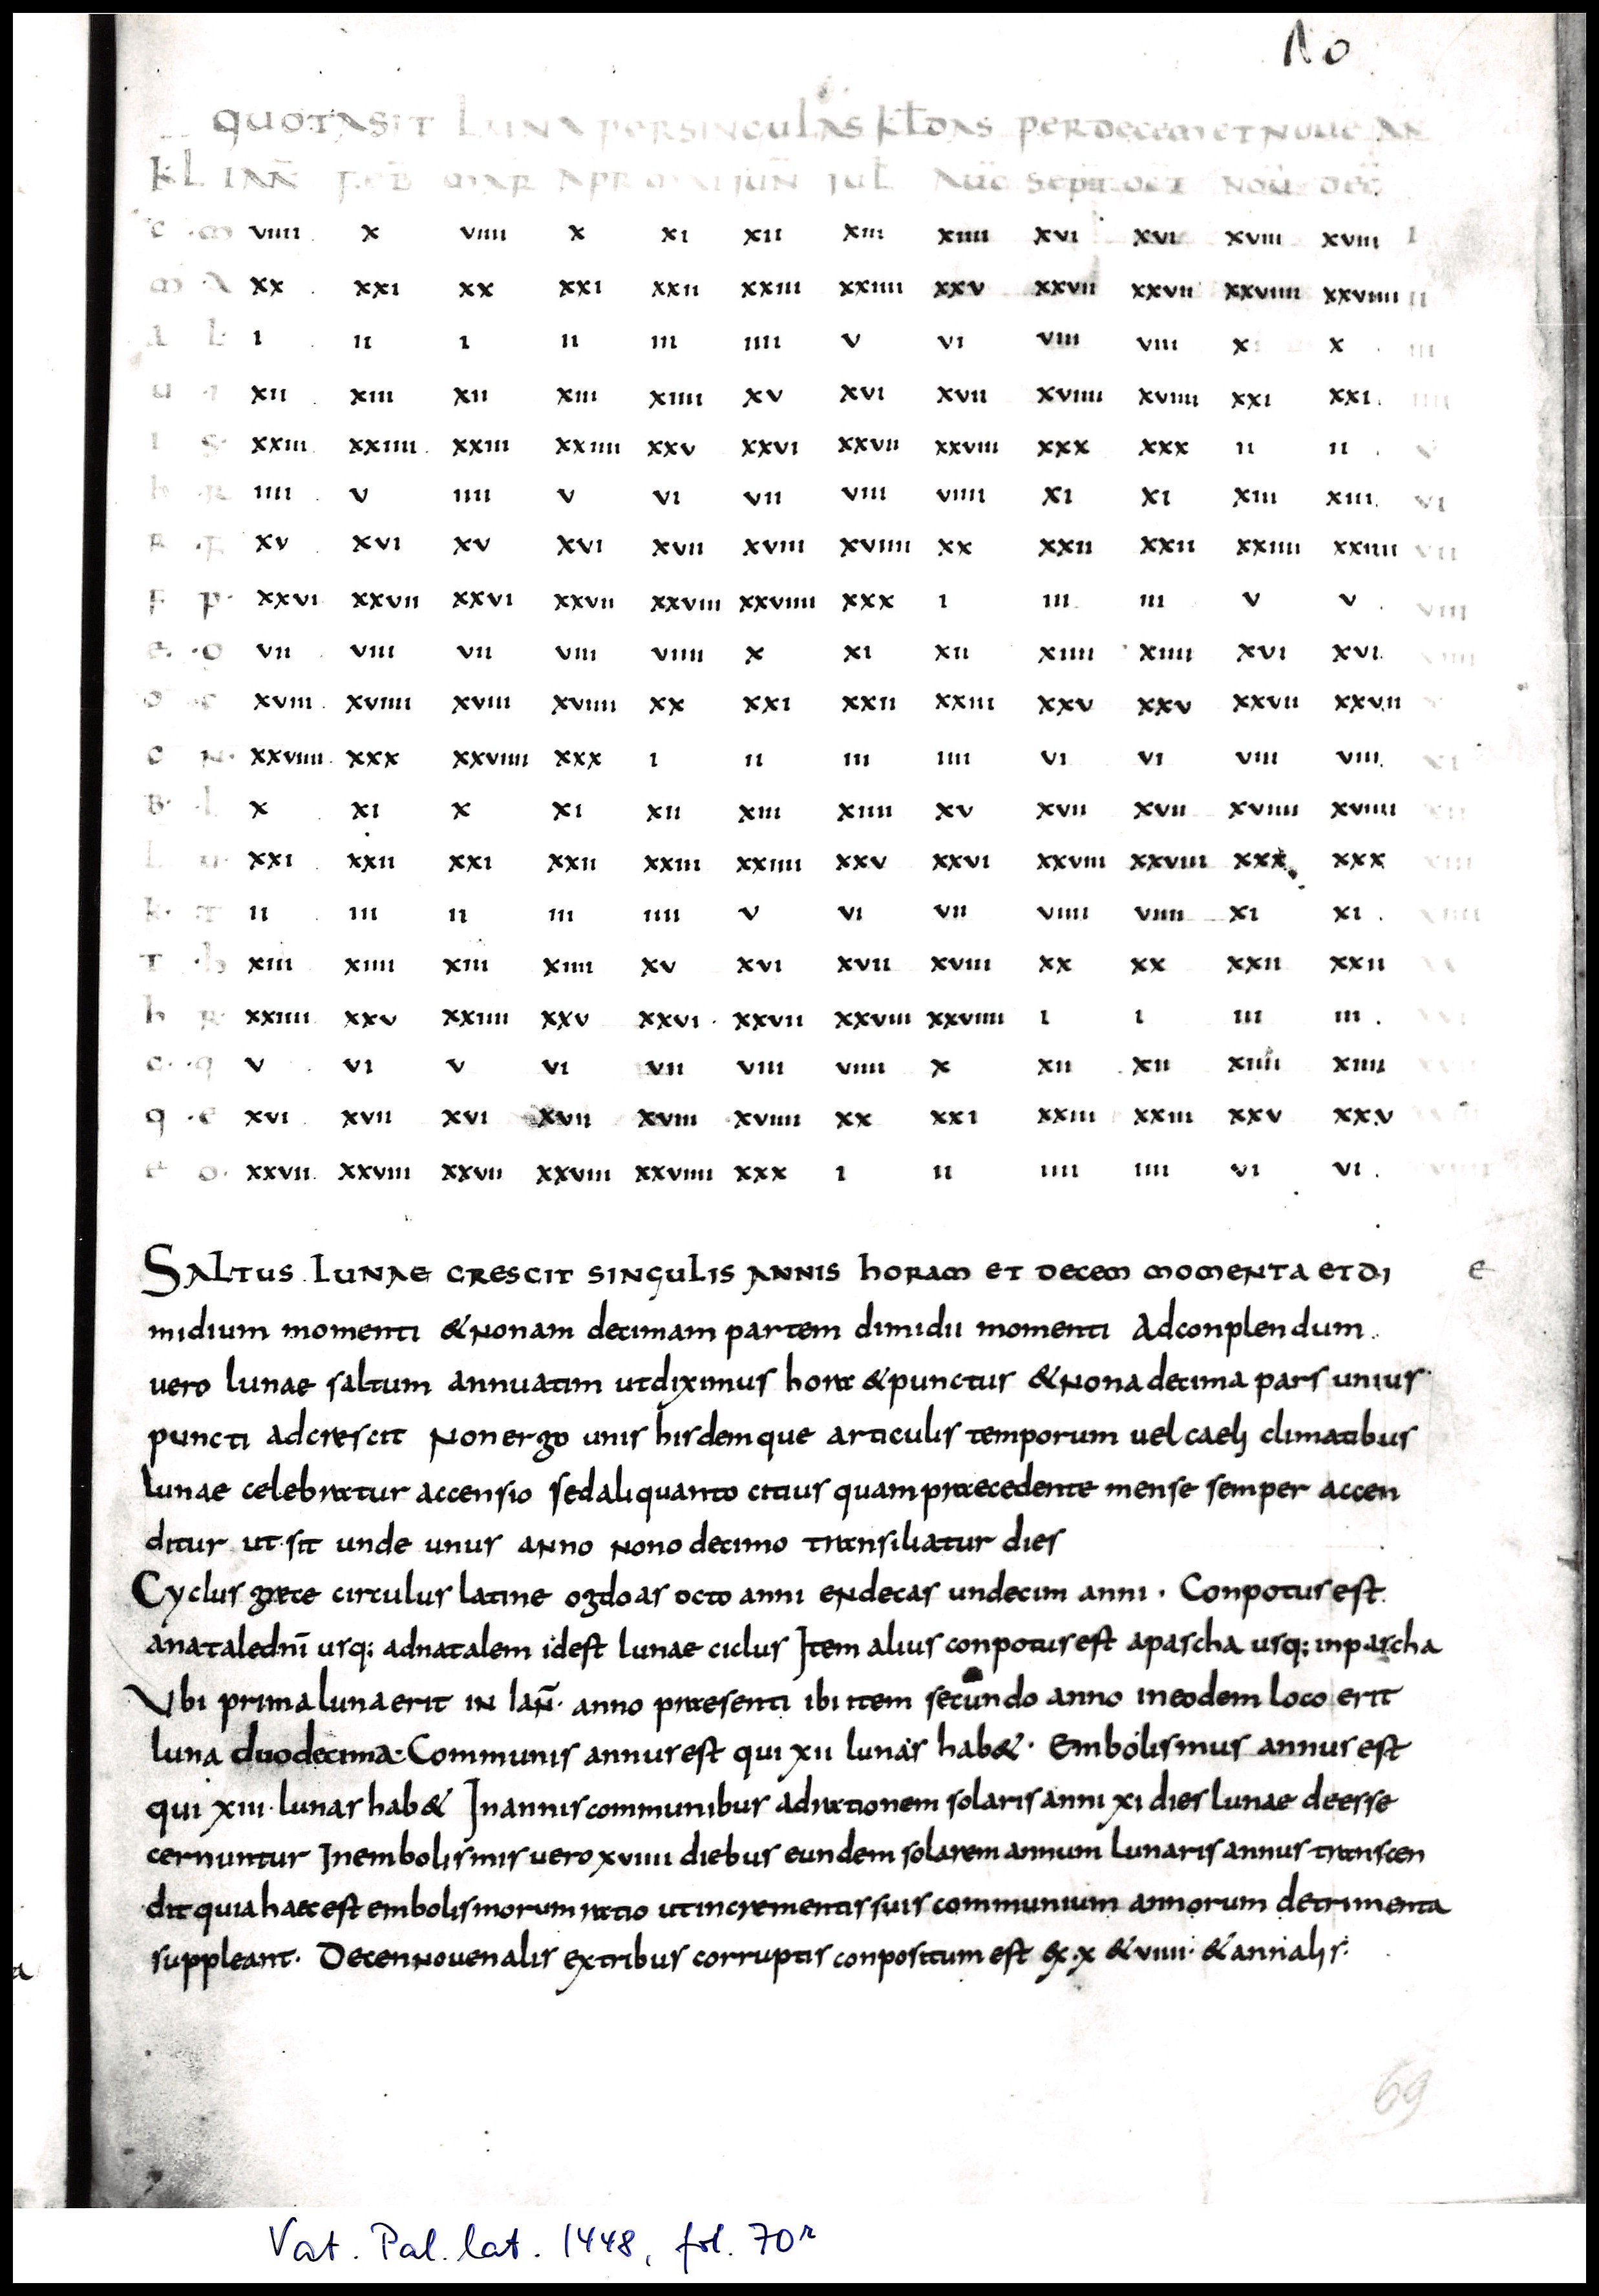 70
QUOTA SIT LUNA PER SINGULAS KLDAS PER DECEM ET NOUE AN
KL IAN FEB MAR APR MAI JUN JUL AUG SEPT OCT NOU DEC
c m viiii x viiii x xi xii xiii xiiii xvi xvi xviii xviii i
m a xx xxi xx xxi xxii xxiii xxiiii xxv xxvii xxvii xxviiii xxviiii ii
i ii i ii iii iiii v vi viii viii x x iii
u xii xiii xii xiii xiiii xv xvi xvii xviiii xviiii xxi xxi iiii
i s xxiii xxiiii xxiii xxiiii xxv xxvi xxvii xxviii xxx xxx ii ii v
iiii v iiii v vi vii viii viiii xi xi xiii xiii vi
xv xvi xv xvi xvii xviii xviiii xx xxii xxii xxiiii xxiiii vii
f p xxvi xxvii xxvi xxvii xxviii xxviiii xxx i iii iii v v viii
e o vii viii vii viii viiii x xi xii xiiii xiiii xvi xvi
o xviii xviiii xviii xviiii xx xxi xxii xxiii xxv xxv xxvii xxvii
c n xxviiii xxx xxviiii xxx i ii iii iiii vi vi viii viii xi
B l x xi x xi xii xiii xiiii xv xvii xvii xviiii xviiii xii
l u xxi xxii xxi xxii xxiii xxiiii xxv xxvi xxviii xxviii xxx xxx xiii
k t ii iii ii iii iiii v vi vii viiii viiii xi xi xiiii
t h xiii xiiii xiii xiiii xv xvi xvii xviii xx xx xxii xxii
h R xxiiii xxv xxiiii xxv xxvi xxvii xxviii xxviiii i i iii iii
c q v vi v vi vii viii viiii x xii xii xiiii xiiii
q e xvi xvii xvi xvii xviii xviiii xx xxi xxiii xxiii xxv xxv
e o xxvii xxviii xxvii xxviii xxviiii xxx i ii iiii iiii vi vi
SALTUS LUNAE CRESCIT SINGULIS ANNIS HORAM ET DECEM MOMENTA ET DI e
midium momenti & nonam decimam partem dimidii momenti Adconplendum
vero lunae saltum annuatim ut diximus hora & punctus & nona decima pars unius
puncti adcrescit Non ergo unis hisdemque articulis temporum vel caeli climatibus
lunae celebratur accensio sed aliquanto citius quam praecedente mense semper accen
ditur ut sit unde unus anno nono decimo transiliatur dies
Cyclus grece circulus latine ogdoas octo anni endecas undecim anni · Conpotus est
a natale dnī usq; ad natalem id est lunae ciclus Item alius conpotus est a pascha usq; in pascha
Ubi prima luna erit in Ian̄ · anno praesenti ibi item secundo anno in eodem loco erit
luna duodecima · Communis annus est qui xii lunas hab& · Embolismus annus est
qui xiii · lunas hab& In annis communibus ad rationem solaris anni xi dies lunae deesse
cernuntur In embolismis vero xviiii diebus eundem solarem annum lunaris annus transcen
dit quia haec est embolismorum ratio ut incrementis suis communium annorum detrimenta
suppleant · Decennovenalis ex tribus corruptis conpositum est ex · x & viiii · & annalis ·
a
69
Vat. Pal. lat. 1448, fol. 70r